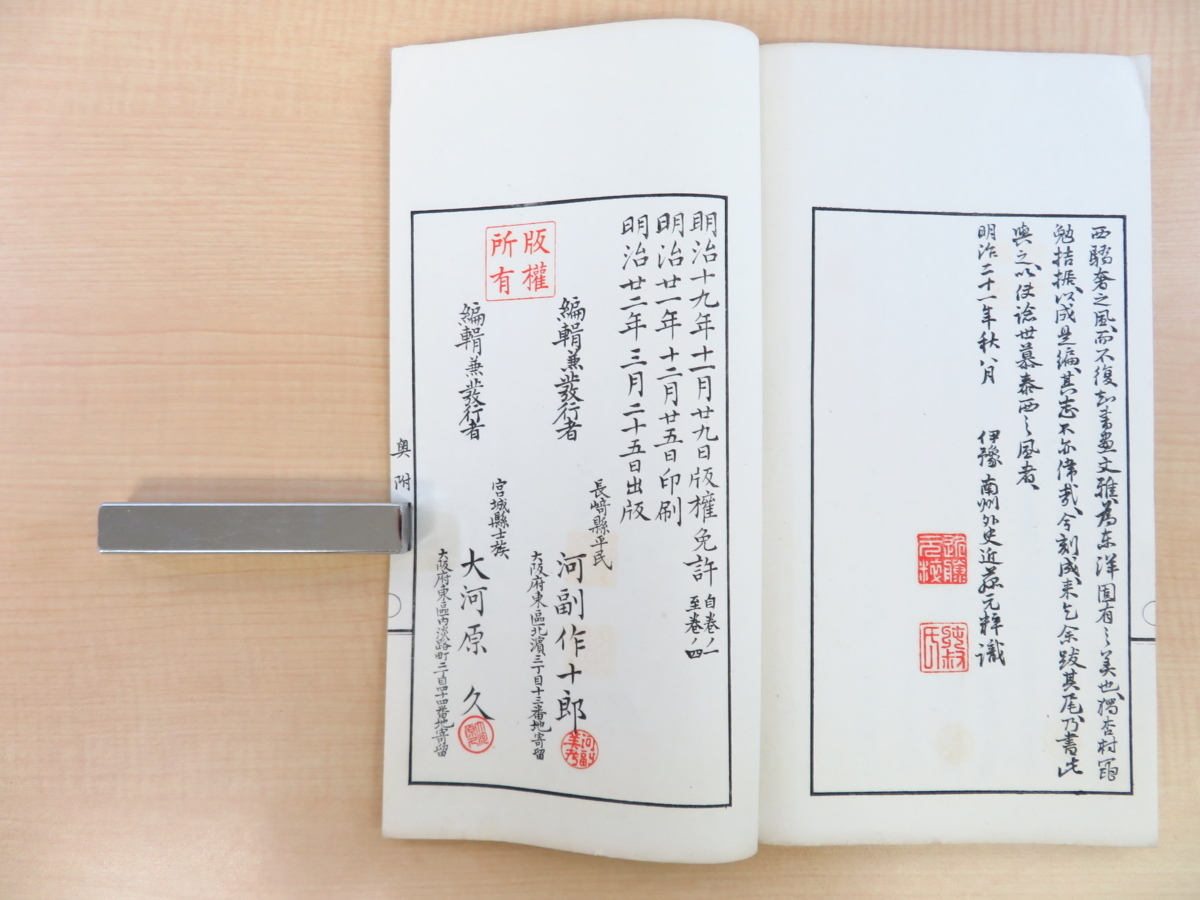 西驕奢之風、而不復知書畫文雅、為东洋固有之美也、獨杏村
勉拮据、以成是編、其志不亦偉哉、今刻成、来乞余跋其尾、乃書此
與之、以使諗世慕泰西之風者、
明治二十一年秋八月　伊豫 南州外史近藤元粹識
明治十九年十一月廿九日版權免許 自卷ノ一 至卷ノ四
明治廿一年十二月廿五日印刷
明治廿二年三月二十五日出版
版權
所有
編輯兼發行者
長崎縣平民
河副作十郎
大阪府東區北濱三丁目十三番地寄留
編輯兼發行者
宮城縣士族
大河原 久
大阪府東區内淡路町二丁目四十四番地寄留
奥附